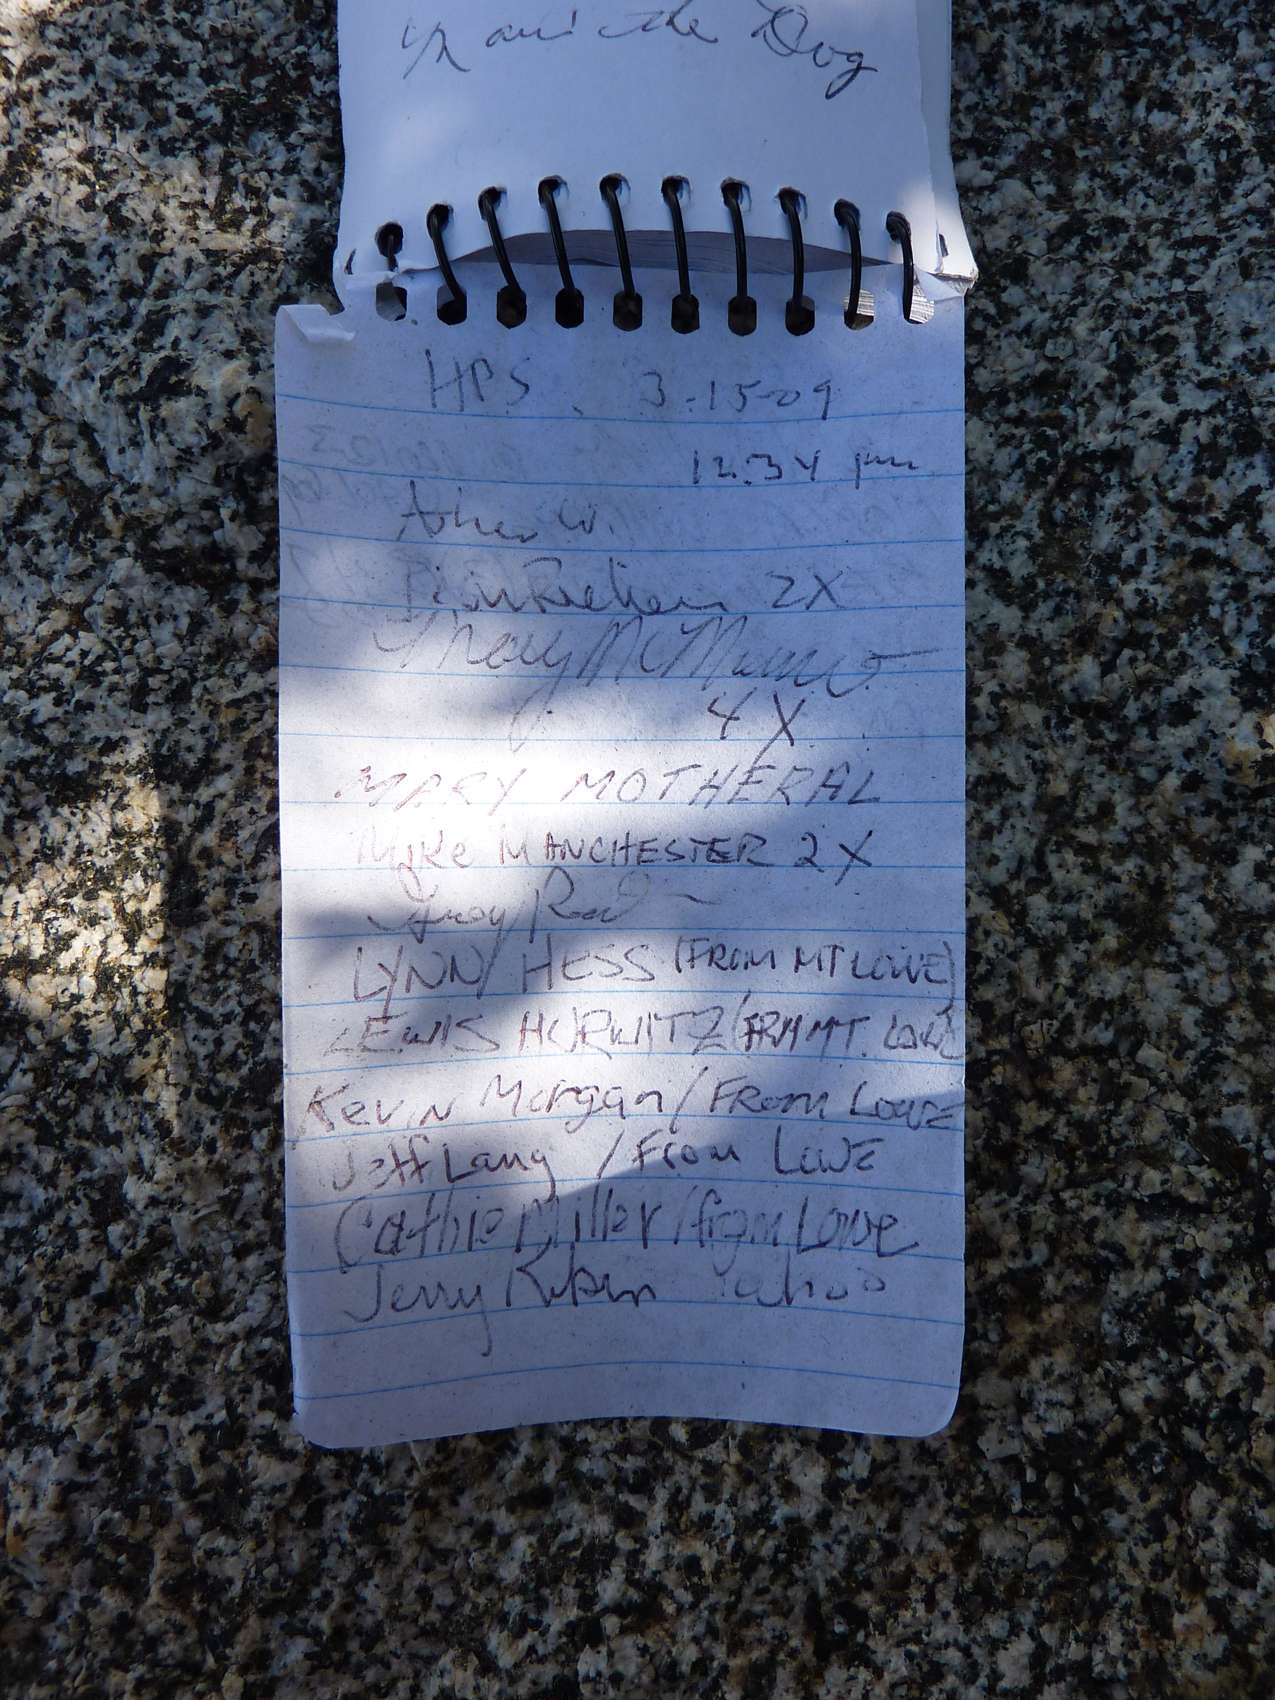 and the Dog
HPS 3-15-09
12:34 pm
W.
2X
Mary McMannes
4X
MARY MOTHERAL
Mike MANCHESTER 2X
LYNN HESS (FROM MT LOWE)
LEWIS HURWITZ (FRM MT. LOWE
Kevin Morgan / FROM LOWE
Jeff Lang / From LOWE
Cathie Miller / from Lowe
Jerry Rubin Yahoo